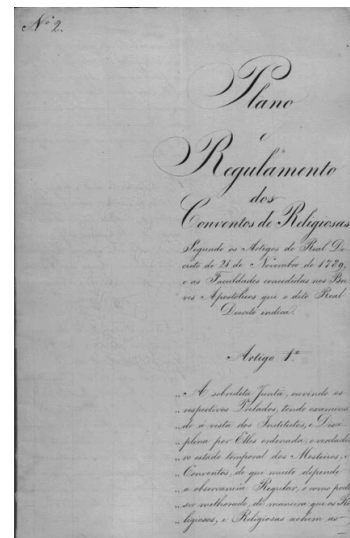 Nº 2.
Plano
e
Regulamento
dos
Conventos de Religiosas
Segundo os Artigos do Real De
creto de 21 de Novembro de 1789,
e as Faculdades concedidas nos Bre
ves Apostolicos que o dito Real
Decreto indica.
Artigo 1º
„ A sobredita Junta, ouvindo os
„ respectivos Prelados, tendo examina
„ do á vista dos Institutos, e Disci
„ plina por Elles ordenada, o verdadei
„ ro estado temporal dos Mosteiros, e
„ Conventos, de que muito depende
„ a observancia Regular, e como pode
„ ser melhorado, de maneira que os Re
„ ligiosos, e Religiosas achem as